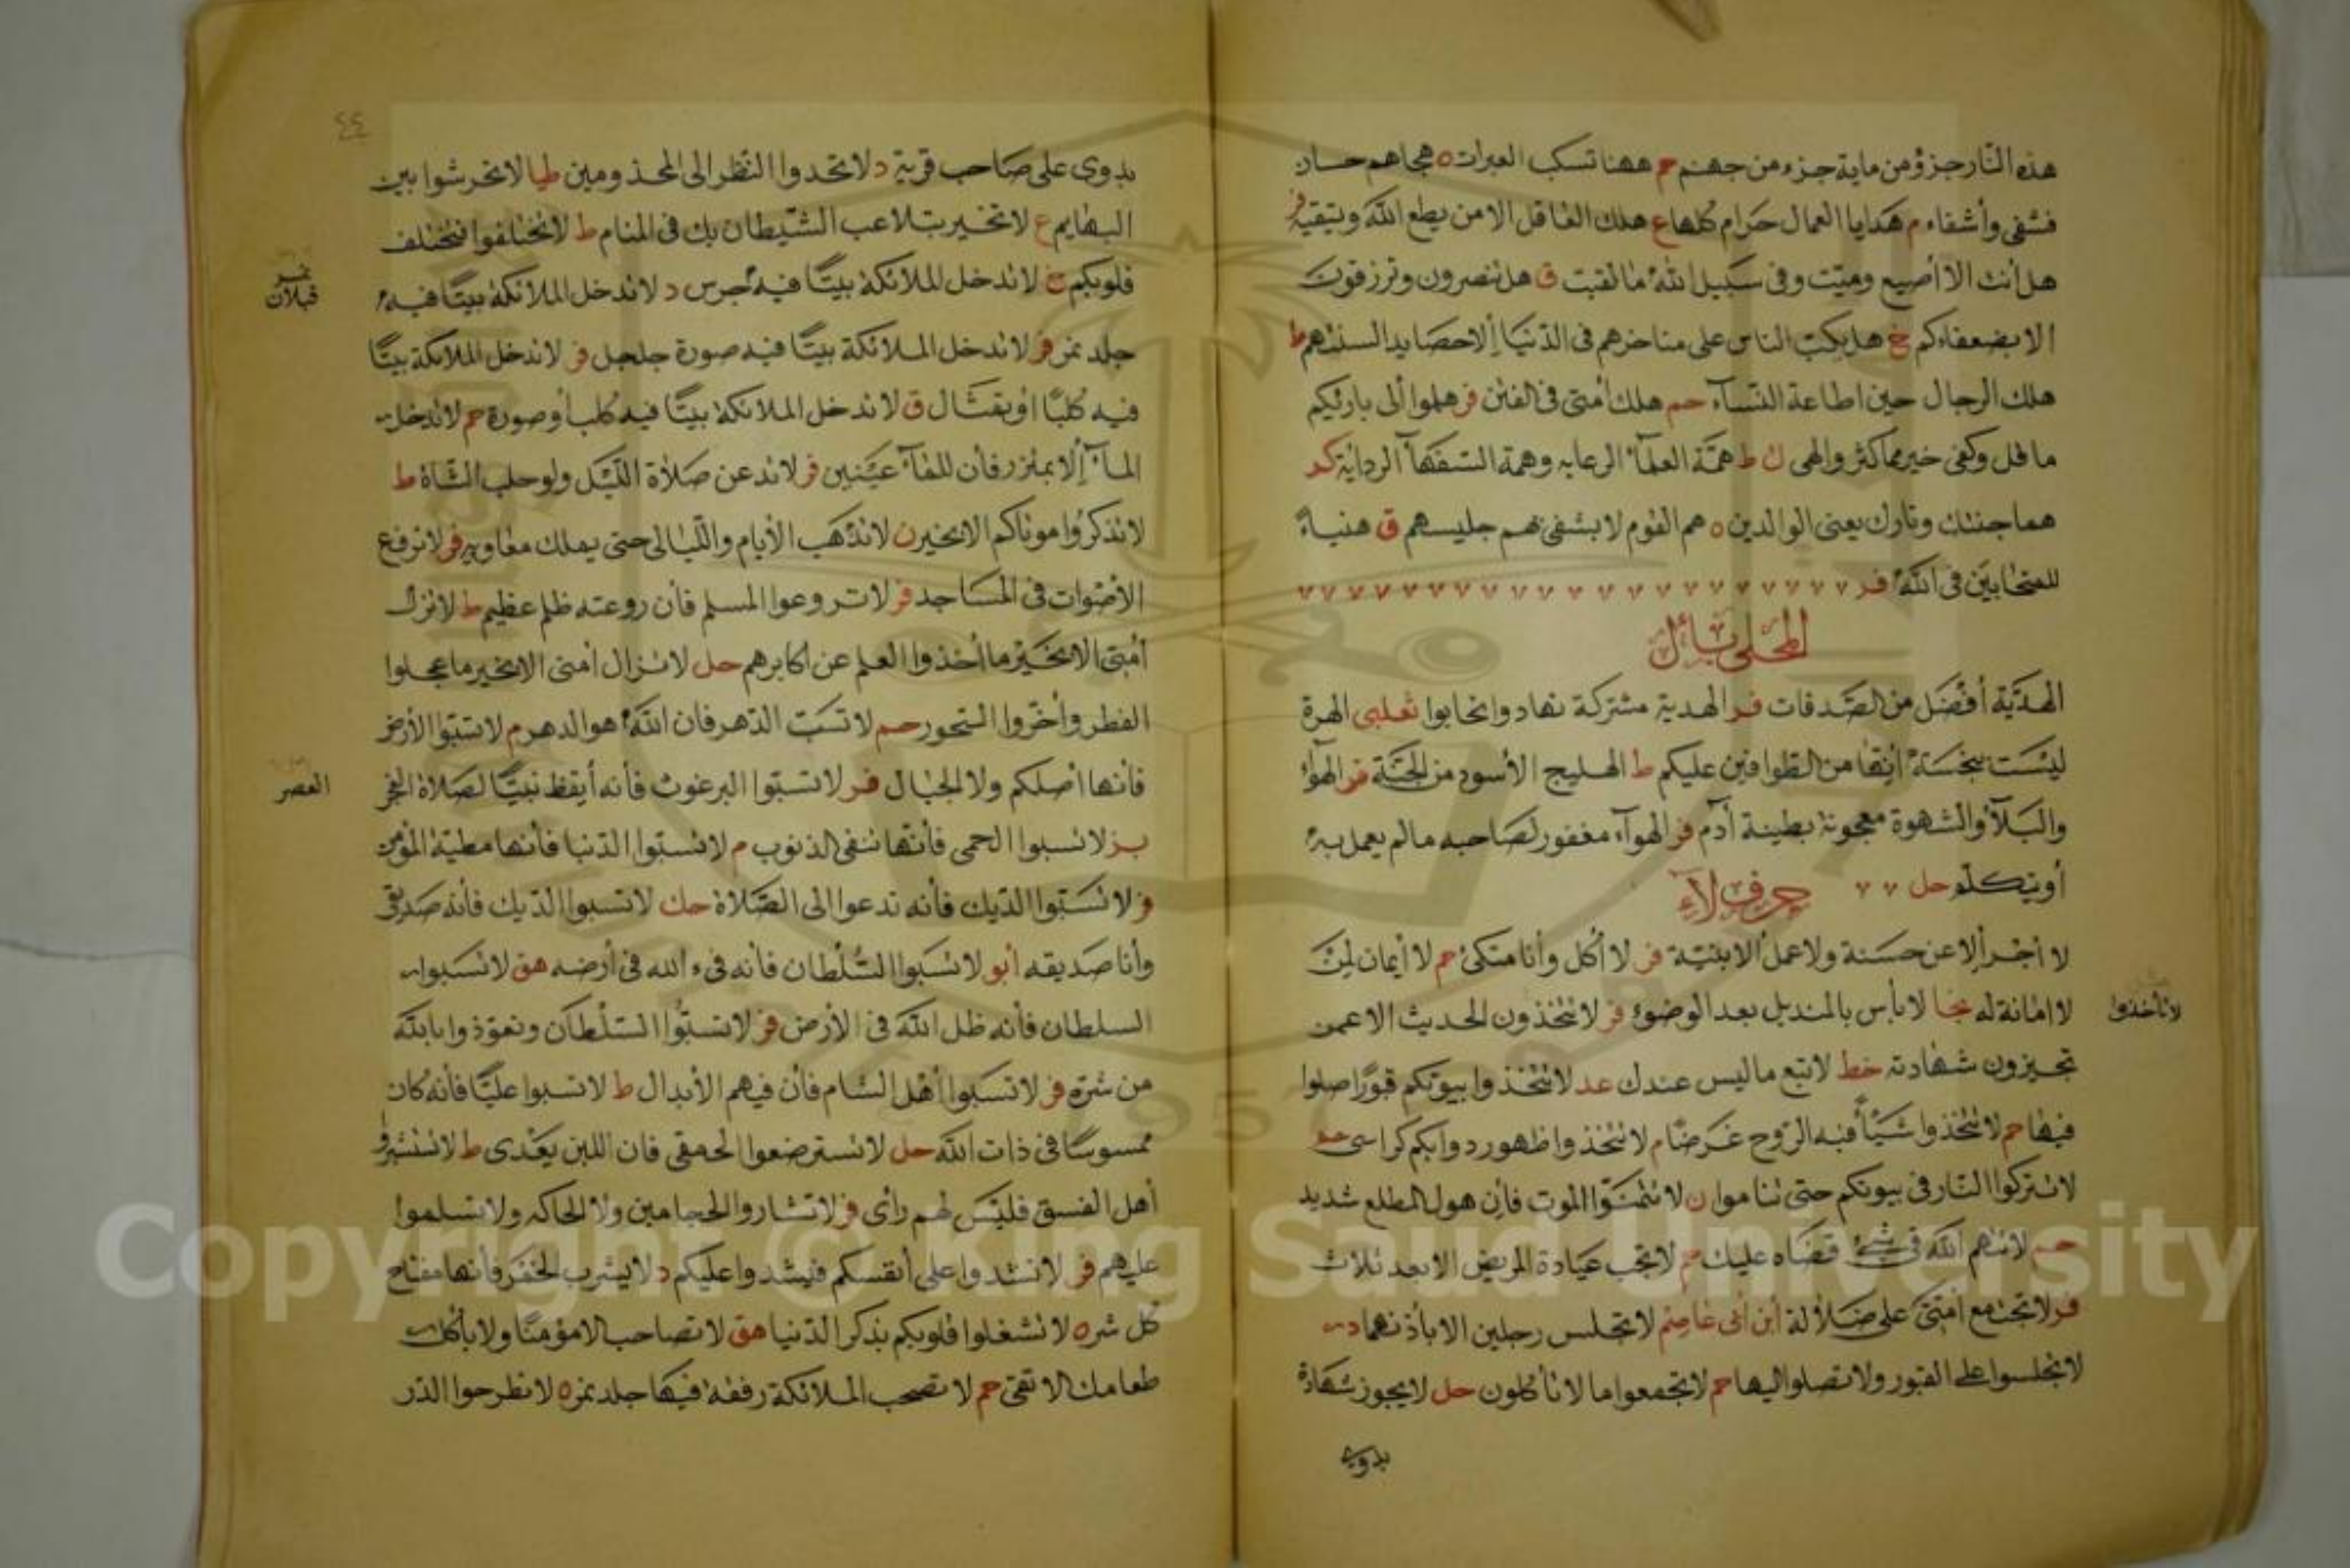 هذه النار جزؤ من ماية جزء من جهنم حم ههنا تسكب العبرات ه هجاهم حسان
فشفى وأشفاء م هدايا العمال حرام كلها ع هلك الغافل الا من يطع الله ويتقيه فر
هل أنت الا أصبع دميت وفى سبيل الله ما لقيت ق هل تنصرون وترزقون
الا بضعفاءكم خ هل يكب الناس على مناخرهم فى الدنيا إلا حصايد السنتهم ط
هلك الرجال حين اطاعة النسآء حم هلك أمتى فى الفتن فر هلموا ألى بارئكم
ما قل وكفى خير مما كثر والهى ك ط همة العلمآء الرعايه وهمة السفهآ الردايه كر
هما جنتك ونارك يعنى الوالدين ه هم القوم لا يشقى بهم جليسهم ق هنياء
للمتحابين فى الله فر
المحلى بأل
الهدية أفضل من الصدقات فر الهدية مشتركة تهادوا تحابوا ثعلبى الهرة
ليست بنجسة انها من الطوافين عليكم ط الهليج الأسود من الجنة فر الهوآء
والبلآؤ والشهوة معجونة بطينة آدم فر الهوآء مغفور لصاحبه مالم يعمل به
أو يتكلم حل
حرف لآء
لا أجر إلا عن حسنة ولا عمل الا بنية فر لا أكل وأنا متكئ حم لا أيمان لمن
لا امانة له نجا لا بأس بالمنديل بعد الوضوء فر لا تتخذون الحديث الا عمن
لا تأخذوا
تجيزون شهادته خط لا تبع ما ليس عندك عد لا تتخذوا بيوتكم قبورا صلوا
فيها حم لا تتخذوا شيئا فيه الروح غرضا م لا تتخذوا ظهور دوابكم كراسى حم
لا تتركوا النار فى بيوتكم حتى تناموا ن لا تتمنوا الموت فإن هول المطلع شديد
حم لا تتهم الله فى شئ قضاه عليك حم لا تجب عيادة المريض الا بعد ثلاث
فر لا تجتمع أمتى على ضلالة أبن أبى عاصم لا تجلس رجلين الا بأذنهما د
لا تجلسوا على القبور ولا تصلوا اليها حم لا تجمعوا ما لا تأكلون حل لا يجوز شهادة
بدوى
٤٤
بدوى على صاحب قرية د لا تحدوا النظر الى المجذومين طيا لا تحرشوا بين
البهايم ع لا تخبر بتلاعب الشيطان بك فى المنام ط لا تختلفوا فتختلف
قلوبكم خ لا تدخل الملائكة بيتا فيه جرس د لا تدخل الملائكة بيتا فيه
جلد نمر فر لا تدخل الملائكة بيتا فيه صورة جلجل فر لا تدخل الملائكة بيتا
فيه كلبا او بقثال ق لا تدخل الملائكة بيتا فيه كلب أو صورة حم لا تدخل
المآء إلا بمئزر فأن للمآء عينين فر لا تدعن صلاة الليل ولو حلب الشاة ط
لا تذكروا موتاكم الا بخير ن لا تذهب الأيام والليالى حتى يملك معاويه فر لا ترفع
الأصوات فى المساجد فر لا تروعوا المسلم فأن روعته ظلم عظيم ط لا تزال
أمتى الا بخير ما أخذوا العلم عن اكابرهم حل لا تزال أمتى الا بخير ما عجلوا
الفطر وأخروا السحور حم لا تسب الدهر فان الله هو الدهر م لا تسبوا الأرض
فأنها أصلكم ولا الجبال فر لا تسبوا البرغوث فأنه أيقظ نبيا لصلاة الفجر
العصر
بز لا تسبوا الحمى فأنها تنفى الذنوب م لا تسبوا الدنيا فأنها مطية المؤمن
فر لا تسبوا الديك فأنه تدعوا الى الصلاة حك لا تسبوا الديك فأنه صديقى
وأنا صديقه أبو لا تسبوا السلطان فأنه فىء الله فى أرضه هق لا تسبوا
السلطان فأنه ظل الله فى الأرض فر لا تسبوا السلطان وتعوذوا بالله
من شره فر لا تسبوا أهل الشام فأن فيهم الأبدال ط لا تسبوا عليا فأنه كان
ممسوسا فى ذات الله حل لا تسترضعوا الحمقى فان اللبن يعدى ط لا تستشيروا
أهل الفسق فليس لهم رأى فر لا تشاروا الحجامين ولا الحاكه ولا تسلموا
عليهم فر لا تشدوا على أنفسكم فيشدوا عليكم د لا يشرب الخمر فأنها مفتاح
كل شر ه لا تشغلوا قلوبكم بذكر الدنيا هق لا تصاحب الا مؤمنا ولا يأكل
طعامك الا تقى حم لا تصحب الملائكة رفقة فيها جلد نمر ه لا تطرحوا الدر